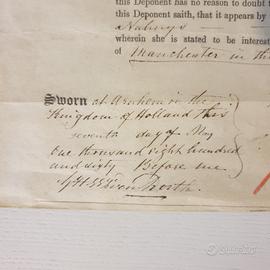 this Deponent has no reason to doubt t
this Deponent saith, that it appears by
wherein she is stated to be interes
of Manchester in th
Sworn at Arnhem in the
Kingdom of Holland this
seventh day of May
one thousand eight hundred
and sixty Before me
subito